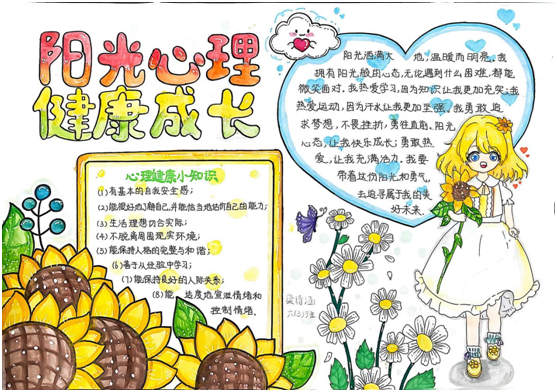 阳光心理
健康成长
阳光洒满大地,温暖而明亮。我
拥有阳光般的心态,无论遇到什么困难,都能
微笑面对。我热爱学习,因为知识让我更加充实;我
热爱运动,因为汗水让我更加坚强。我勇敢追
求梦想,不畏挫折,勇往直前。阳光
心态,让我快乐成长;勇敢热
爱,让我充满活力。我要
带着这份阳光和勇气,
去追寻属于我的美
好未来.
心理健康小知识
(1)有基本的自我安全感;
(2)能很好地了解自己,并能恰当地估价自己的能力;
(3)生活理想切合实际;
(4)不脱离周围现实环境;
(5)能保持人格的完整与和谐;
(6)善于从经验中学习;
(7)能保持良好的人际关系;
(8)能适度地宣泄情绪和
控制情绪.